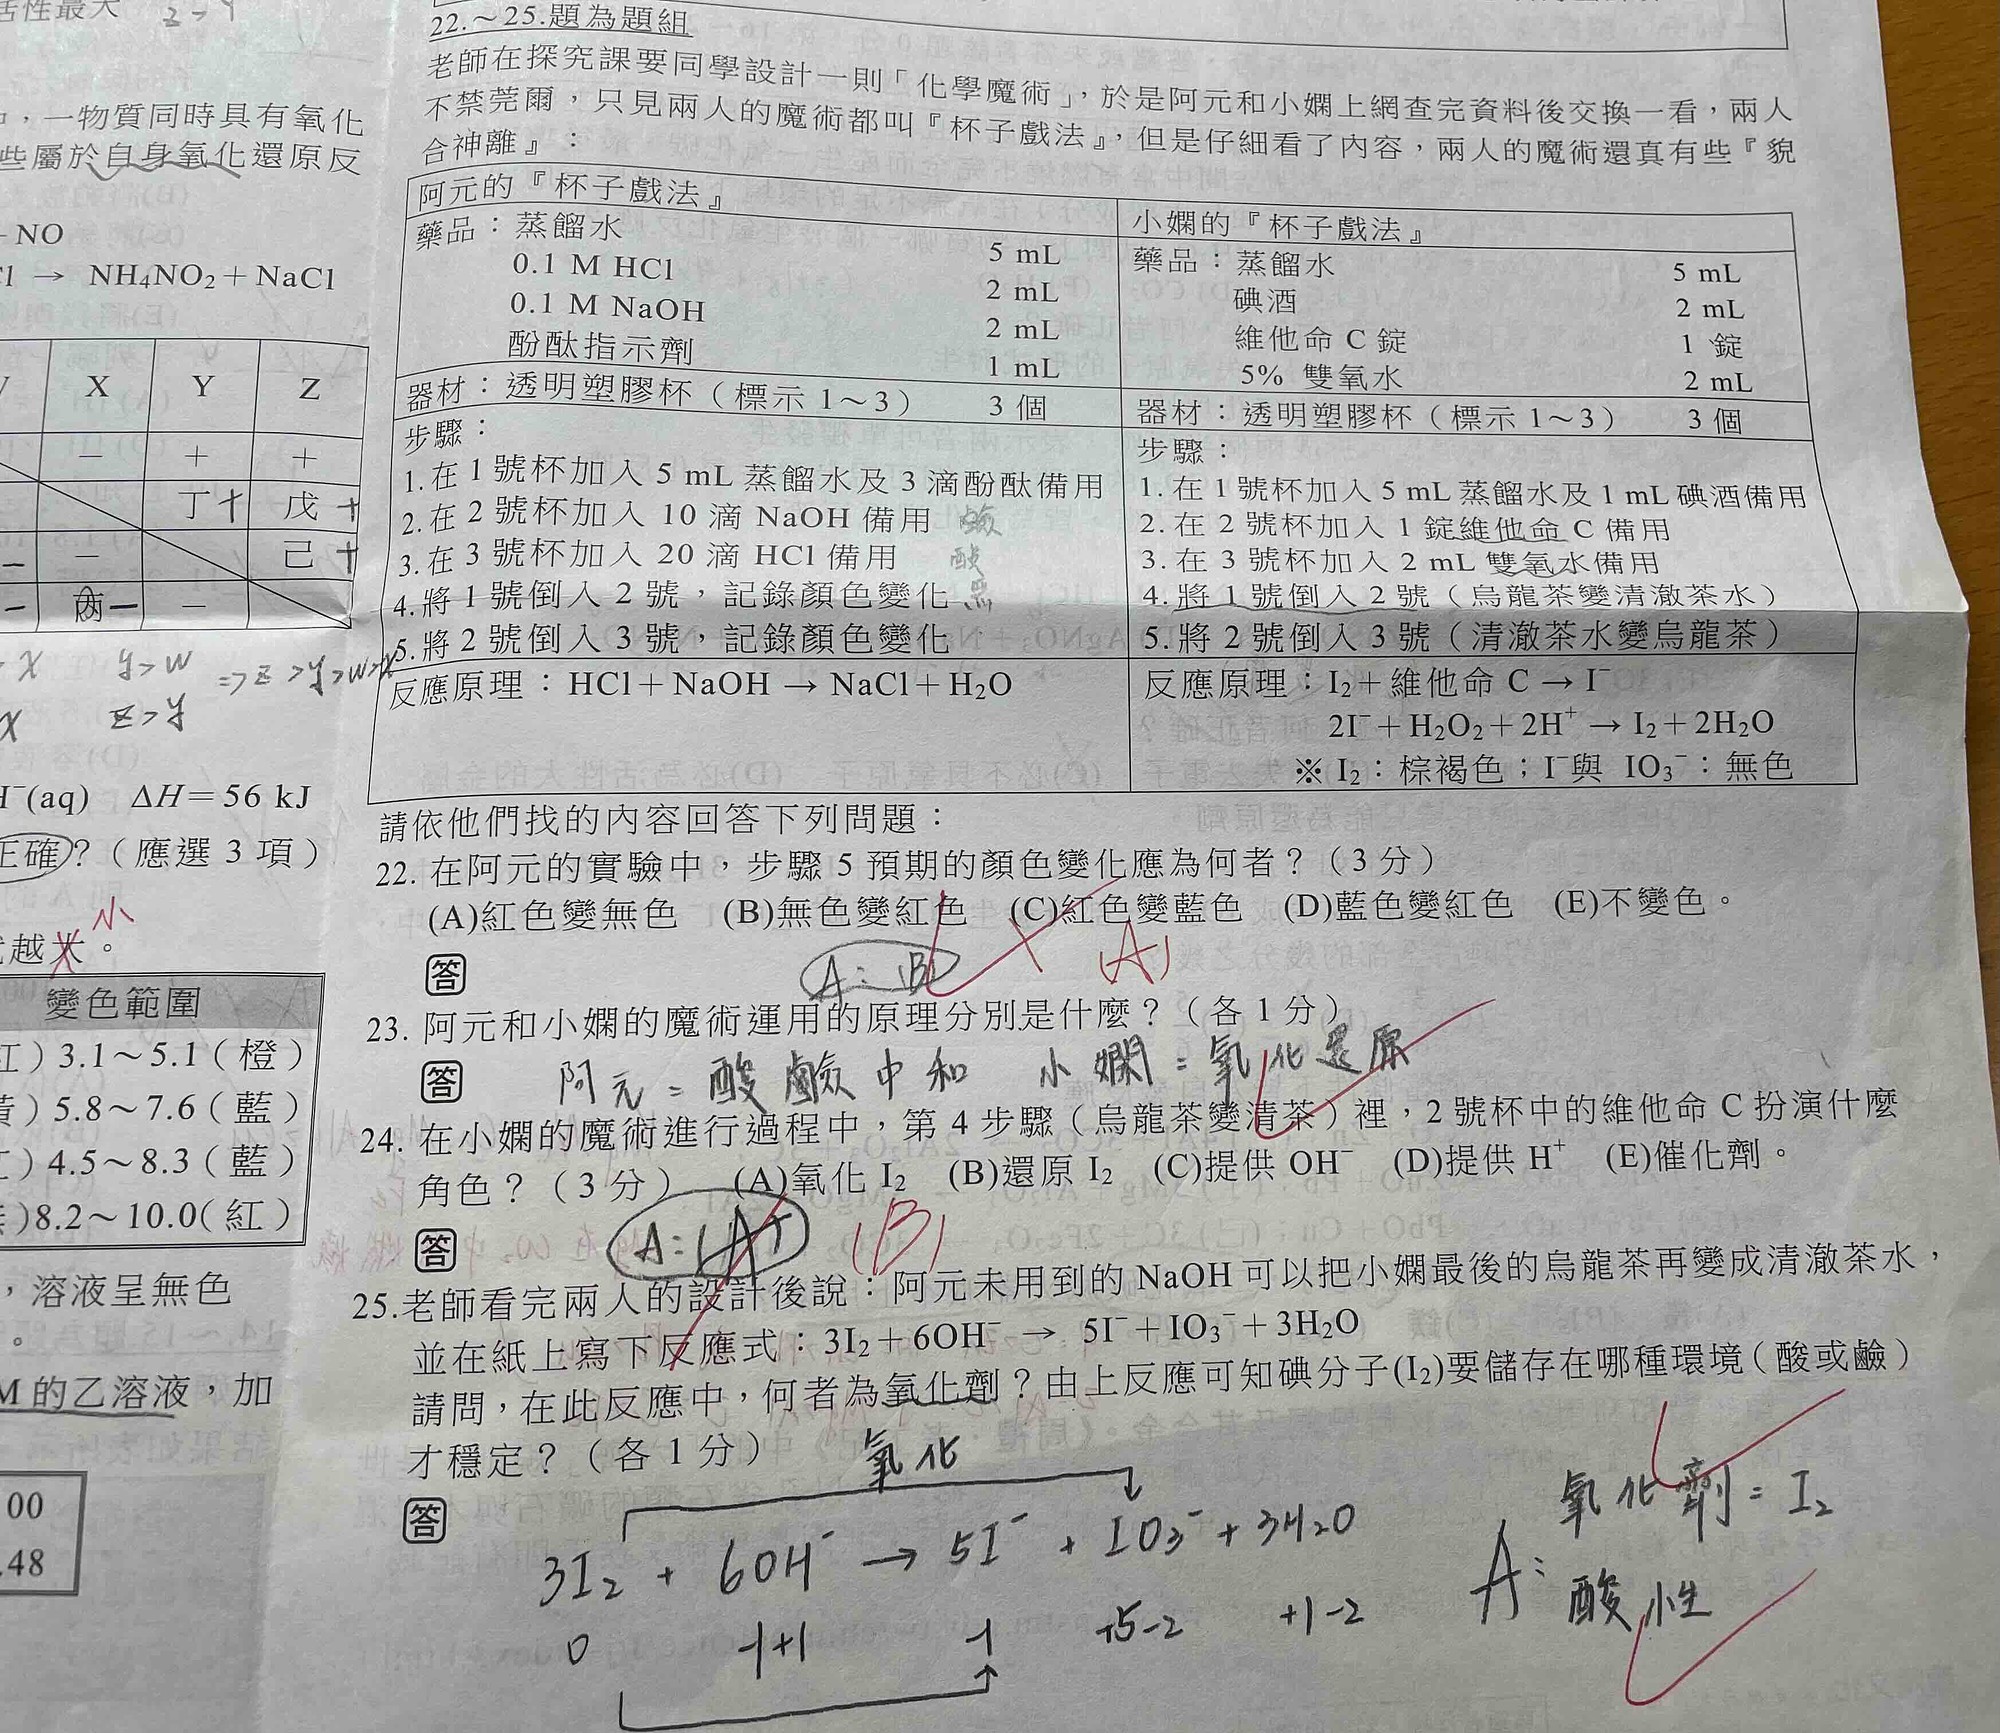 活性最大 Z>Y
，一物質同時具有氧化
些屬於自身氧化還原反
NO
→ NH4NO2＋NaCl
X Y Z
－ ＋ ＋
丁＋ 戊＋
－ － 己＋
－ 丙－ －
X Y>W ⇒Z>Y>W>X
X Z>Y
(aq) ΔH＝56 kJ
正確？（應選 3 項）
越大。小
變色範圍
）3.1～5.1（橙）
）5.8～7.6（藍）
）4.5～8.3（藍）
）8.2～10.0（紅）
，溶液呈無色
。
M 的乙溶液，加
00
.48
22.～25.題為題組
老師在探究課要同學設計一則「化學魔術」，於是阿元和小嫻上網查完資料後交換一看，兩人
不禁莞爾，只見兩人的魔術都叫『杯子戲法』，但是仔細看了內容，兩人的魔術還真有些『貌
合神離』：
阿元的『杯子戲法』
藥品：蒸餾水 5 mL
0.1 M HCl 2 mL
0.1 M NaOH 2 mL
酚酞指示劑 1 mL
器材：透明塑膠杯（標示 1～3） 3 個
步驟：
1.在 1 號杯加入 5 mL 蒸餾水及 3 滴酚酞備用
2.在 2 號杯加入 10 滴 NaOH 備用 鹼
3.在 3 號杯加入 20 滴 HCl 備用 酸
4.將 1 號倒入 2 號，記錄顏色變化
5.將 2 號倒入 3 號，記錄顏色變化
反應原理：HCl＋NaOH → NaCl＋H2O
小嫻的『杯子戲法』
藥品：蒸餾水 5 mL
碘酒 2 mL
維他命 C 錠 1 錠
5% 雙氧水 2 mL
器材：透明塑膠杯（標示 1～3） 3 個
步驟：
1.在 1 號杯加入 5 mL 蒸餾水及 1 mL 碘酒備用
2.在 2 號杯加入 1 錠維他命 C 備用
3.在 3 號杯加入 2 mL 雙氧水備用
4.將 1 號倒入 2 號（烏龍茶變清澈茶水）
5.將 2 號倒入 3 號（清澈茶水變烏龍茶）
反應原理：I2＋維他命 C → I⁻
2I⁻＋H2O2＋2H⁺ → I2＋2H2O
※ I2：棕褐色；I⁻與 IO3⁻：無色
請依他們找的內容回答下列問題：
22. 在阿元的實驗中，步驟 5 預期的顏色變化應為何者？（3 分）
(A)紅色變無色 (B)無色變紅色 (C)紅色變藍色 (D)藍色變紅色 (E)不變色。
答 A：(B) (A)
23. 阿元和小嫻的魔術運用的原理分別是什麼？（各 1 分）
答 阿元=酸鹼中和 小嫻=氧化還原
24. 在小嫻的魔術進行過程中，第 4 步驟（烏龍茶變清茶）裡，2 號杯中的維他命 C 扮演什麼
角色？（3 分） (A)氧化 I2 (B)還原 I2 (C)提供 OH⁻ (D)提供 H⁺ (E)催化劑。
答 A：(A) (B)
25.老師看完兩人的設計後說：阿元未用到的 NaOH 可以把小嫻最後的烏龍茶再變成清澈茶水，
並在紙上寫下反應式：3I2＋6OH⁻ → 5I⁻＋IO3⁻＋3H2O
請問，在此反應中，何者為氧化劑？由上反應可知碘分子(I2)要儲存在哪種環境（酸或鹼）
才穩定？（各 1 分）
氧化
答
3I2 + 6OH⁻ → 5I⁻ + IO3⁻ + 3H2O
0 -1+1 -1 +5-2 +1-2
A：氧化劑=I2
酸性